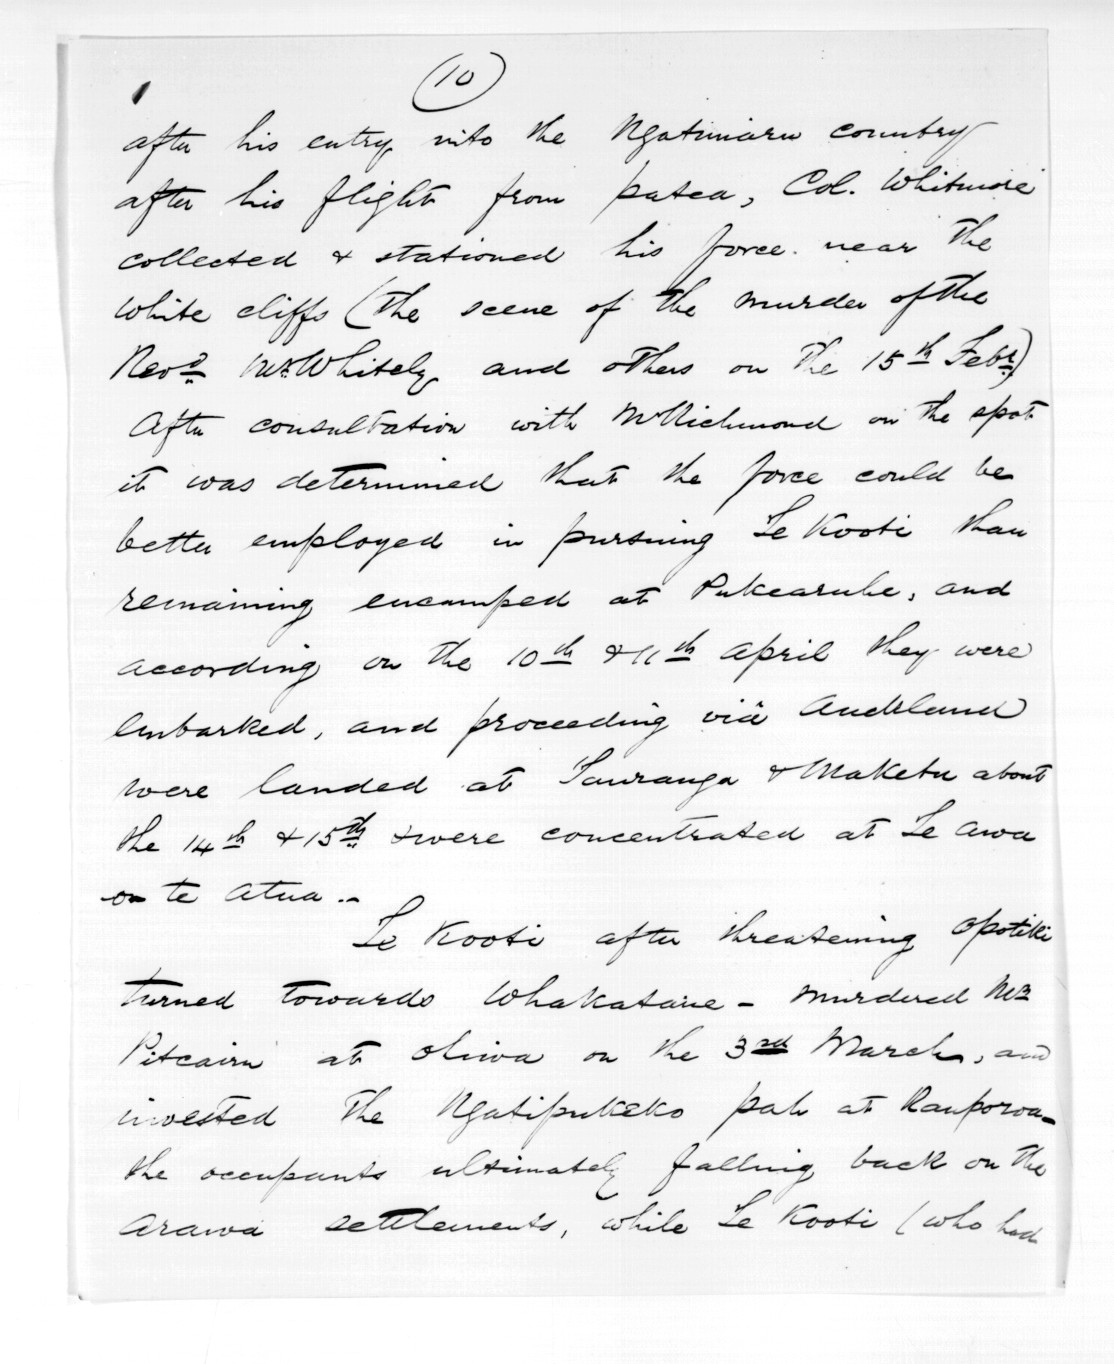 (10)
after his entry into the Ngatimaru country
after his flight from patea, Col. Whitmore
collected & stationed his force near the
White cliffs (the scene of the murder of the
Revd Mr Whitely and others on the 15th Febr)
After consultation with Mr Richmond on the spot
it was determined that the force could be
better employed in pursuing Te Kooti than
remaining encamped at Pukearuhe, and
according on the 10th & 11th April they were
embarked, and proceeding viâ Auckland
were landed at Tauranga & Maketu about
the 14th & 15th & were concentrated at Te Awa
o te Atua.-
Te Kooti after threatening Opotiki
turned towards Whakatane - murdered Mr
Pitcairn at Ohiwa on the 3rd March, and
invested the Ngatipukeko pah at Rauporoa-
the occupants ultimately falling back on the
Arawa settlements, while Te Kooti (who had